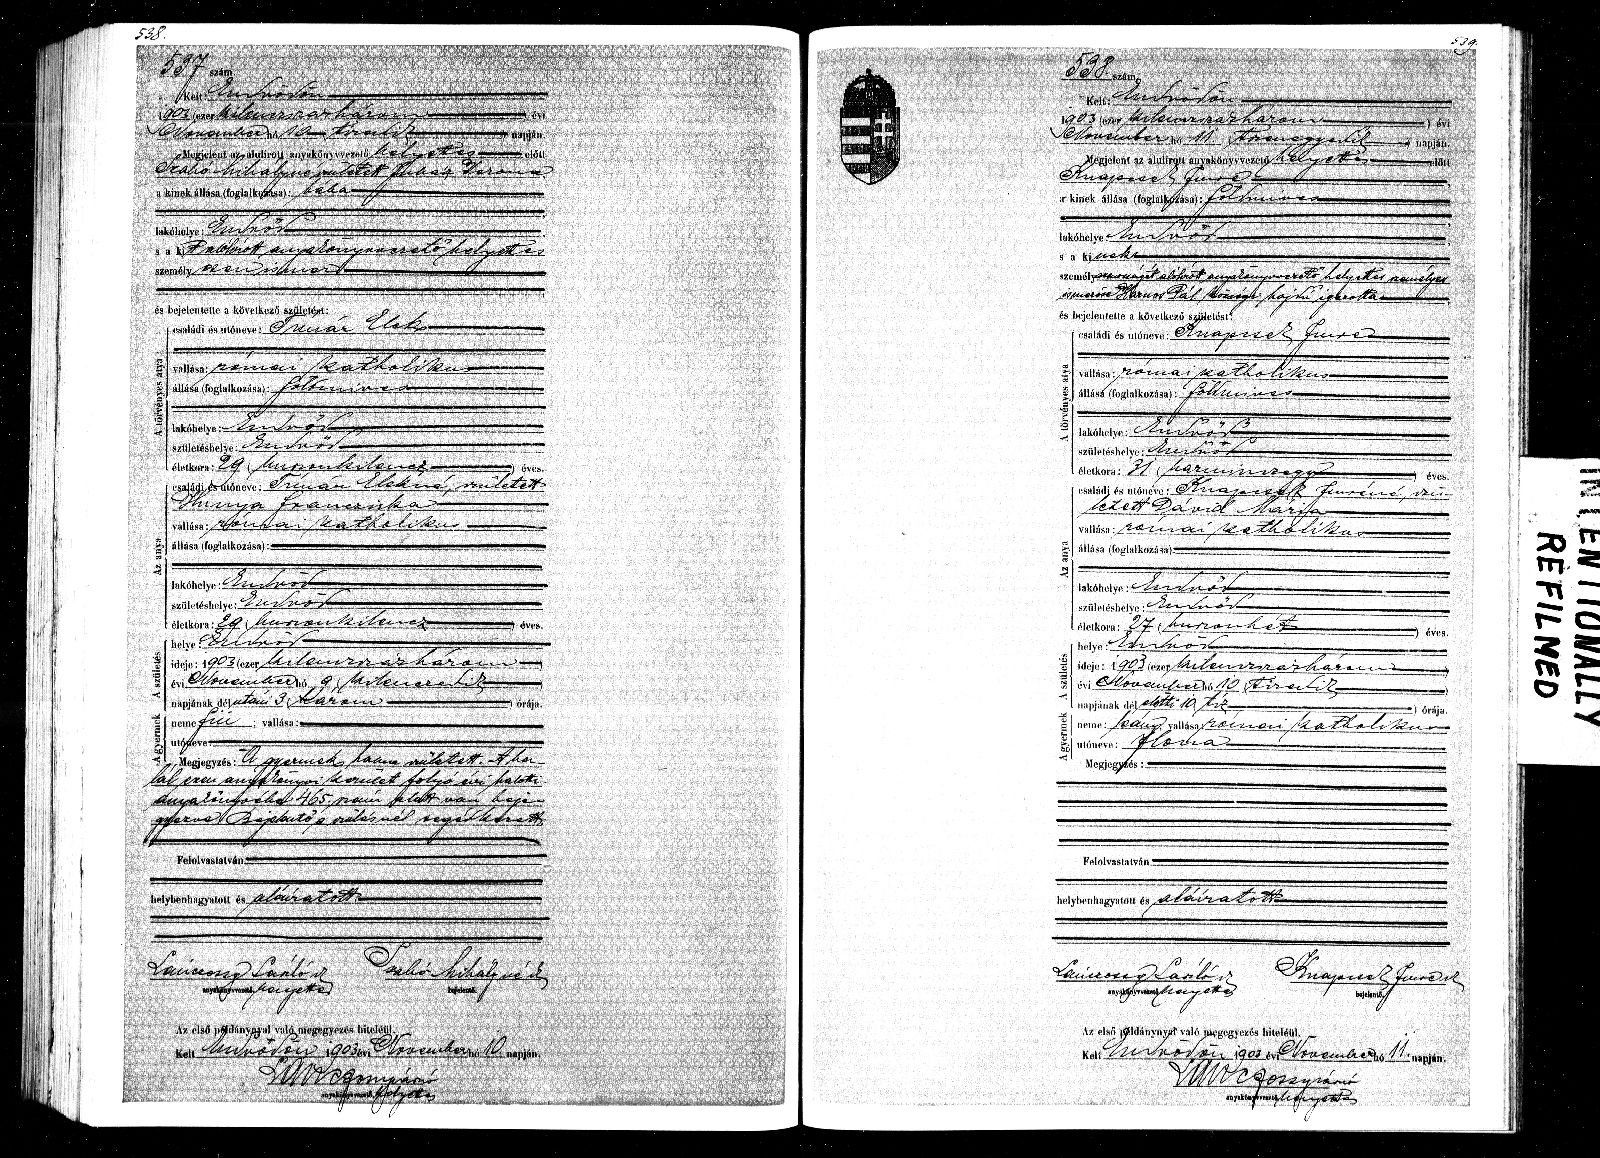 538.
537 szám
Kelt: Endrődön
1903 (ezer kilenczszázhárom ) évi
November hó 10 tizedik napján.
Megjelent az alulirott anyakönyvvezető helyettes előtt
Szabó Mihályné született Juhász Verona
a kinek állása (foglalkozása): bába
lakóhelye: Endrőd
s a kit alulirott anyakönyvvezető helyettes
személyesen ismer
és bejelentette a következő születést:
A törvényes atya
családi és utóneve: Timár Elek
vallása: római katholikus
állása (foglalkozása): földmives
lakóhelye: Endrőd
születéshelye: Endrőd
életkora: 29 (huszonkilencz ) éves.
Az anya
családi és utóneve: Timár Elekné, született
Hunya Francziska
vallása: római katholikus
állása (foglalkozása):
lakóhelye: Endrőd
születéshelye: Endrőd
életkora: 29 (huszonkilencz ) éves.
A születés
helye: Endrőd
ideje: 1903 (ezer kilenczszázhárom )
évi November hó 9 (kilenczedik )
napjának délutáni 3 (három ) órája.
A gyermek
neme: fiú ; vallása:
utóneve:
Megjegyzés: A gyermek halva született. A ha-
lál ezen anyakönyvi kerület folyó évi halotti
anyakönyvébe 465. szám alatt van beje-
gyezve. Bejelentő a szülésnél segédkezett
Felolvastatván
helybenhagyatott és aláiratott.
László Szabó Mihályné
anyakönyvvezető helyettes bejelentő.
Az első példánynyal való megegyezés hiteléül.
Kelt Endrődön 1903 évi November hó 10. napján.
anyakönyvvezető helyettes
539.
538 szám
Kelt: Endrődön
1903 (ezer kilenczszázhárom ) évi
November hó 11 tizenegyedik napján.
Megjelent az alulirott anyakönyvvezető helyettes előtt
Knapcsek Imre
a kinek állása (foglalkozása): földmives
lakóhelye: Endrőd
s a kinek
személyazonosságát alulirott anyakönyvvezető helyettes személyes
ismerőse Harnos Pál községi hajdú igazolta
és bejelentette a következő születést:
A törvényes atya
családi és utóneve: Knapcsek Imre
vallása: római katholikus
állása (foglalkozása): földmives
lakóhelye: Endrőd
születéshelye: Endrőd
életkora: 31 (harminczegy ) éves.
Az anya
családi és utóneve: Knapcsek Imréné, szü-
letett Dávid Mária
vallása: római katholikus
állása (foglalkozása):
lakóhelye: Endrőd
születéshelye: Endrőd
életkora: 27 (huszonhét ) éves.
A születés
helye: Endrőd
ideje: 1903 (ezer kilenczszázhárom )
évi November hó 10 (tizedik )
napjának délelőtti 10 (tiz ) órája.
A gyermek
neme: leány vallása: római katholikus
utóneve:
Megjegyzés:
Felolvastatván
helybenhagyatott és aláiratott
László Knapcsek Imre
anyakönyvvezető helyettes bejelentő.
Az első példánynyal való megegyezés hiteléül.
Kelt Endrődön 1903 évi November hó 11. napján.
anyakönyvvezető helyettes
INTENTIONALLY
REFILMED